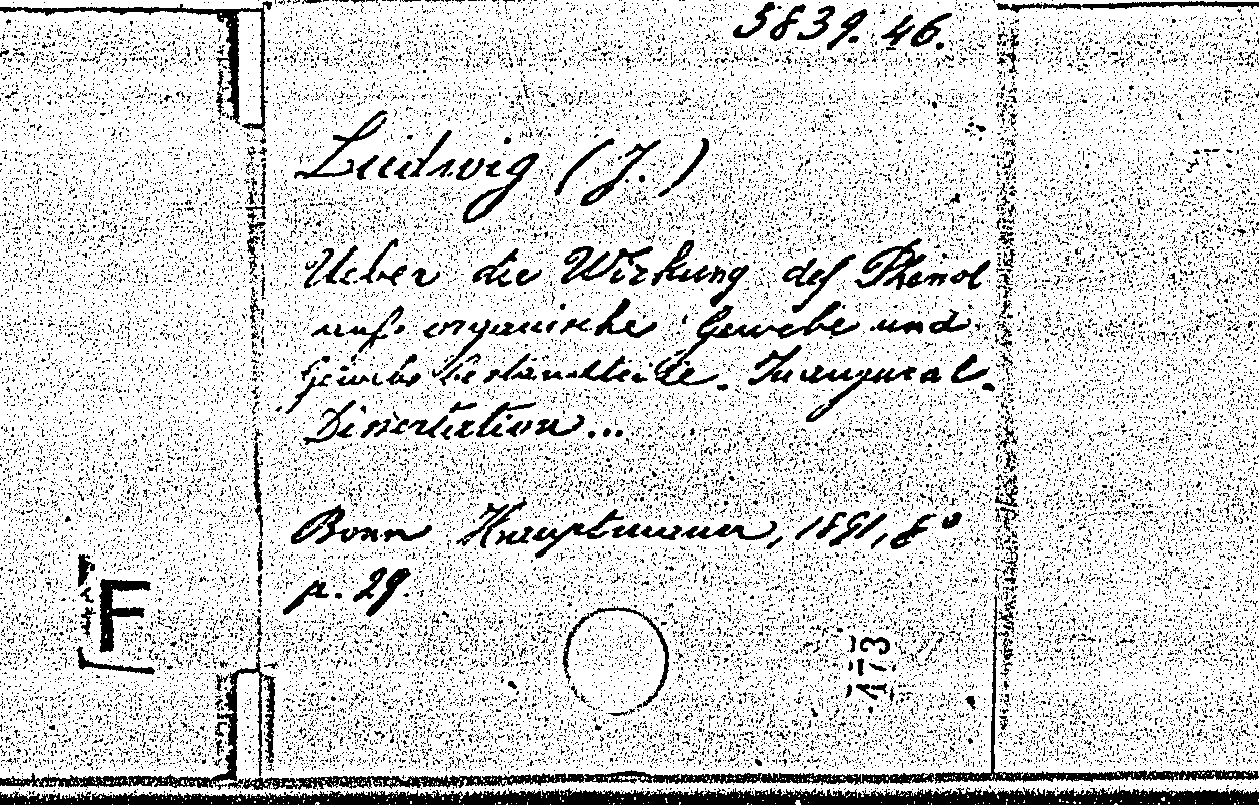 5839. 46.
Ludwig (J.)
Ueber die Wirkung des Phenol
aufs organische Gewebe und
Gewebsbestandteile. Inaugural-
Dissertation...
Bonn Hauptmann, 1891, 8°
p. 29.
F
473